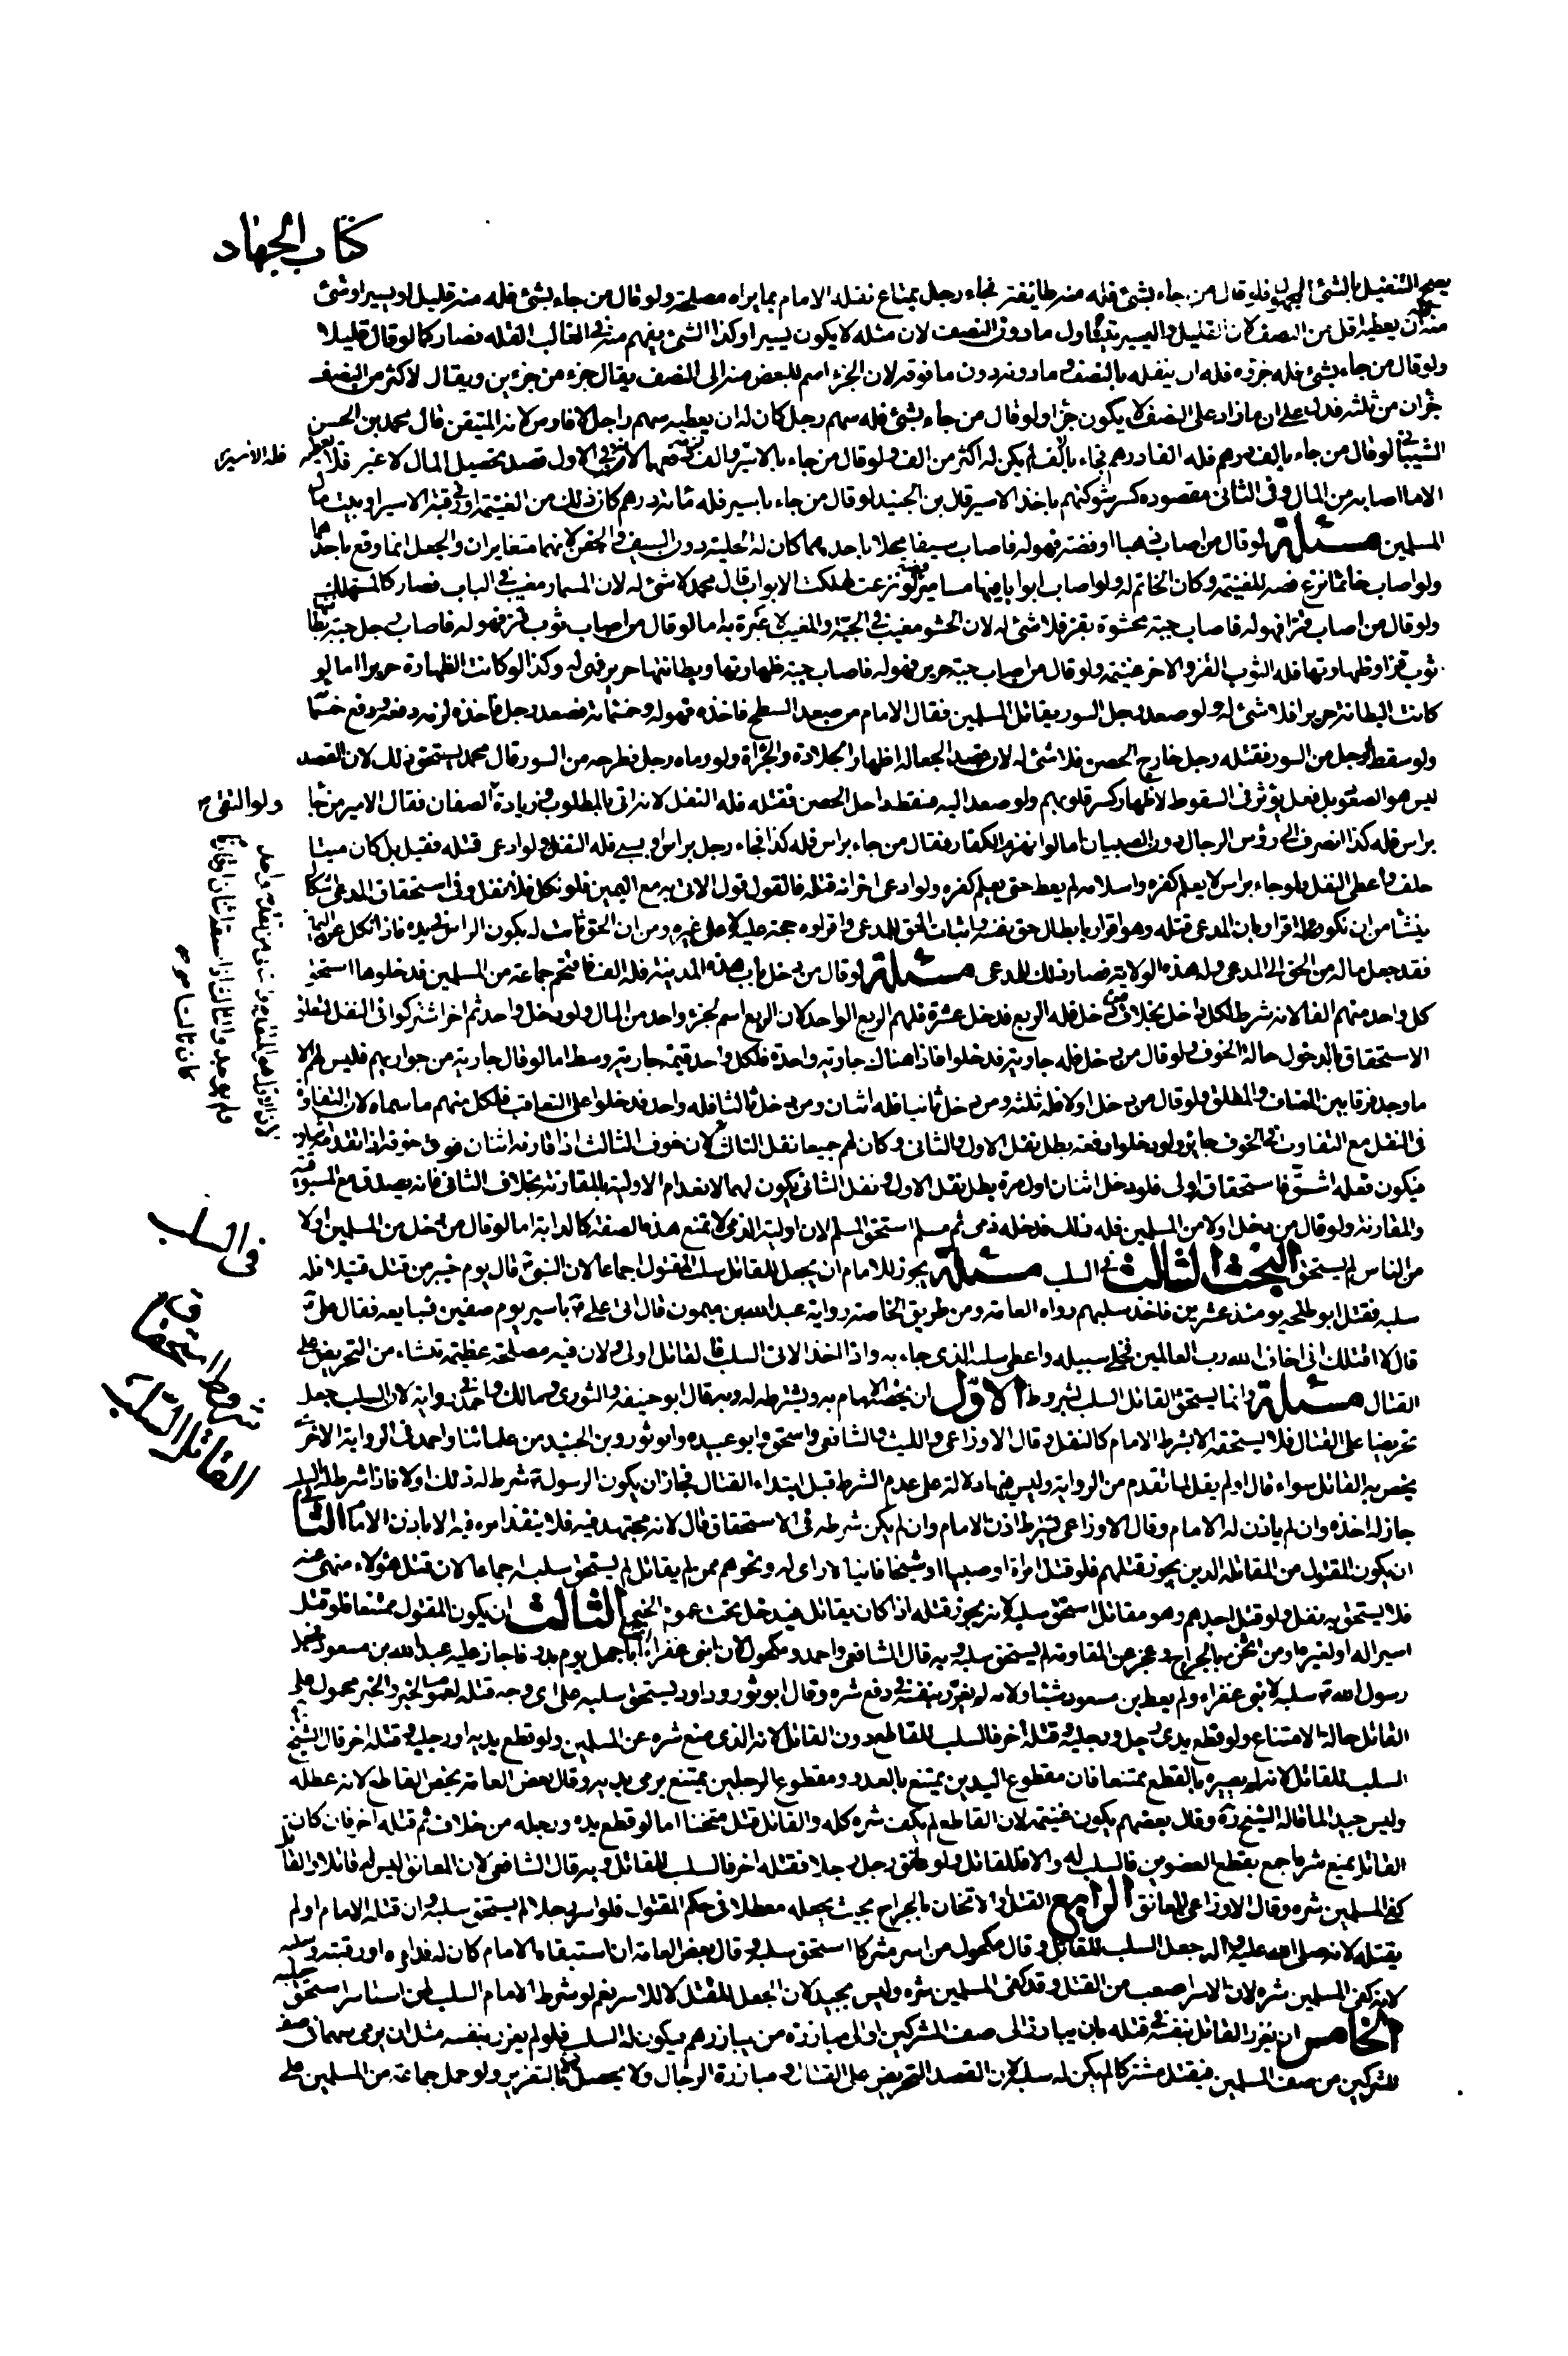 كتاب الجهاد
يصح التنفيل بالشئ المجهول فلو قال من جاء بشئ فله منه طائفة فجاء رجل بمتاع نفله الامام بما يراه مصلحة ولو قال من جاء بشئ فله منه قليل او يسير او شئ
منه فله ان يعطيه اقل من النصف لان القليل واليسير يتناول ما دون النصف لان مثله لا يكون يسيرا وكذا الشئ يفهم منه في الغالب القلة فصار كما لو قال قليلا
ولو قال من جاء بشئ فله جزؤه فله ان ينفله بالنصف وما دونه دون ما فوقه لان الجزء اسم للبعض منه الى النصف يقال جزء من جزءين ويقال لاكثر من النصف
جزءان من ثلثة فدل على ان ما زاد على النصف لا يكون جزءا ولو قال من جاء بشئ فله سهم رجل كان له ان يعطيه سهم راجل لا فارس لانه المتيقن قال محمد بن الحسن
الشيباني لو قال من جاء بالف درهم فله الف درهم فجاء بالف لم يكن له اكثر من الف ولو قال من جاء بالاسير والف درهم فهما لان في الاول قصد تحصيل المال لا غير فلا يعطيه
فله الاسير
الا ما اصابه من المال وفي الثاني مقصوده كسر شوكتهم باخذ الاسير قال بن الجنيد لو قال من جاء باسير فله مائة درهم كان ذلك من الغنيمة او في رقبة الاسير او بيت مال
المسلمين مسئلة لو قال من اصاب ذهبا او فضة فهو له فاصاب سيفا محلا باحدهما كان له الحلية دون السيف والجفن لانهما متغايران والجعل انما وقع باحدهما
ولو اصاب خاتما نزع فصه للغنيمة وكان الخاتم له ولو اصاب ابوابا فيها مسامير فضة لو نزعت لهلكت الابواب قال محمد لا شئ له لان المسمار مغيب في الباب فصار كالمستهلك
ولو قال من اصاب قزا فهو له فاصاب جبة محشوة بقز فلا شئ له لان الحشو مغيب في الجبة والمغيب لا عبرة به اما لو قال من اصاب ثوب قز فهو له فاصاب رجل جبة بطانتها
ثوب قز او ظهارتها فله الثوب القز والاخر غنيمة ولو قال من اصاب جبة حرير فهو له فاصاب جبة ظهارتها وبطانتها حرير فهى له وكذا لو كانت الظهارة حريرا اما لو
كانت البطانة حريرا فلا شئ له ولو صعد رجل السور يقاتل المسلمين فقال الامام من صعد السطح فاخذه فهو له وخمسمائة فصعد رجل فاخذه لزمه دفعه ودفع خمسمائة
ولو سقط الرجل من السور فقتله رجل خارج الحصن فلا شئ له لان قصد الجعالة اظهار الجلادة والجرأة ولو رماه رجل فطرحه من السور قال محمد يستحق ذلك لان القصد
ليس هو الصعود بل فعل يؤثر في السقوط لاظهار كسر قلوبهم ولو صعد اليه فسقط داخل الحصن فقتله فله النفل لانه اتى بالمطلوب وزيادة الصفان فقال الامير من جاء
ولو التقى
براس فله كذا انصرف الى رؤس الرجال دون الصبيان اما لو انهزم الكفار فقال من جاء براس فله كذا فجاء رجل براس وسبى فله النفل ولو ادعى قتله فقيل بل كان ميتا
حلف واعطى النفل ولو جاء براس لا يعلم كفره واسلامه لم يعط حتى يعلم كفره ولو ادعى اخر انه قتله فالقول قول الاتى به مع اليمين فلو نكل فلا نفل وفي استحقاق المدعى اشكال
ينشأ من ان نكوله اقرار بان المدعى قتله وهو اقرار بابطال حق نفسه واثبات الحق للمدعى واقراره حجة عليه لا على غيره ومن ان الحق ثابت له بكون الراس في يده فاذا نكل عن اليمين
فقد جعل ما له من الحق الى المدعى وله هذه الولاية فصار ذلك للمدعى مسئلة لو قال من دخل باب هذه المدينة فله الف فاقتحم جماعة من المسلمين فدخلوها استحق
كل واحد منهم الفا لانه شرط لكل داخل بخلاف من دخل فله الربع فدخل عشرة فلهم الربع الواحد لان الربع اسم لجزء واحد من المال ولو دخل واحد ثم اخر اشتركوا في النفل لتعلق
الاستحقاق بالدخول حالة الخوف ولو قال من دخل فله جارية فدخلوا فاذا هناك جارية واحدة فلكل واحد قيمة جارية وسط اما لو قال جارية من جواريهم فليس لهم الا
ما وجد فرقا بين المضاف والمطلق ولو قال من دخل اولا فله ثلثة ومن دخل ثانيا فله اثنان ومن دخل ثالثا فله واحد فدخلوا على التعاقب فلكل منهم ما سماه لان التفاوت
في النفل مع التفاوت في الخوف جائز ولو دخلوا دفعة بطل نفل الاول والثاني وكان لهم جميعا نفل الثالث لان خوف الثالث اذا قارنه اثنان فوق خوفه اذا تقدمه
فيكون فعله اشق فاستحقاقه اولى فلو دخل اثنان اول مرة بطل نفل الاول ونفل الثاني يكون لهما لانعدام الاولية بالمقارنة بخلاف الثاني فانه يصدق مع المسبوقية
والمقارنة ولو قال من دخل اولا من المسلمين فله ذلك فدخله ذمى ثم مسلم استحق المسلم لان اولية الذمى لا تمنع هذه الصفة كالدابة اما لو قال من دخل من المسلمين اولا
من الناس لم يستحق البحث الثالث في السلب مسئلة يجوز للامام ان يجعل للقاتل سلب المقتول اجماعا لان النبى قال يوم خيبر من قتل قتيلا فله
في السلب
سلبه فقتل ابو طلحة يومئذ عشرين فاخذ سلبهم رواه العامة ومن طريق الخاصة رواية عبدالله بن ميمون قال اتى على باسير يوم صفين فبايعه فقال على
قال لا اقتلك انى اخاف الله رب العالمين فخلى سبيله واعطى سلبه الذى جاء به واذا اخذ الاتى السلب فالقاتل اولى ولان فيه مصلحة عظيمة تنشاء من التحريض على
القتال مسئلة وانما يستحق القاتل السلب بشروط الاول ان يخصه الامام به ويشترطه له وبه قال ابو حنيفة والثورى ومالك واحمد في رواية لان السلب جعل
شروط استحقاق
القاتل السلب
تحريضا على القتال فلا يستحقه الا بشرط الامام كالنفل وقال الاوزاعى والليث والشافعى واسحق وابو عبيده وابو ثور وبن الجنيد من علمائنا واحمد في الرواية الاخرى
يخص به القاتل سواء قال او لم يقل لما تقدم من الرواية وليس فيها دلالة على عدم الشرط قبل ابتداء القتال فجاز ان يكون الرسول شرط له ذلك اولا فاذا شرط له السلب
جاز له اخذه وان لم ياذن له الامام وقال الاوزاعى يشترط اذن الامام وان لم يكن شرطه في الاستحقاق قال لانه مجتهد فيه فلا ينفذ امره فيه الا باذن الامام الثاني
ان يكون المقتول من المقاتلة الذين يجوز قتلهم فلو قتل امراة او صبيا او شيخا فانيا لا راى له ونحوهم ممن لم يقاتل لم يستحق سلبه اجماعا لان قتل هؤلاء منهى عنه
فلا يستحق به نفل ولو قتل احدهم وهو مقاتل استحق سلبه لانه يجوز قتله اذا كان يقاتل فيدخل تحت عموم الخبر الثالث ان يكون المقتول ممتنعا فلو قتل
اسيرا له او لغيره او من اثخن بالجراح وعجز عن المقاومة لم يستحق سلبه وبه قال الشافعى واحمد ومكحول لان ابنى عفراء اثخنا ابا جهل يوم بدر فاجاز عليه عبد الله بن مسعود فجعل
رسول الله سلبه لابنى عفراء ولم يعط بن مسعود شيئا ولانه لم يغرر بنفسه في دفع شره وقال ابو ثور وداود يستحق سلبه على اى وجه قتله لعموم الخبر والخبر محمول على
القاتل حالة الامتناع ولو قطع يدى رجل ورجليه وقتله اخر فالسلب للقاطع دون القاتل لانه الذى منع شره عن المسلمين ولو قطع يديه او رجليه وقتله اخر قال الشيخ
السلب للقاتل لانه لم يصيره بالقطع ممتنعا فان مقطوع اليدين يمتنع بالعدو ومقطوع الرجلين يمتنع برمى يديه وقال بعض العامة يخص القاطع لانه عطله
وليس جيدا لما قاله الشيخ وقال بعضهم يكون غنيمة لان القاطع لم يكف شره كله والقاتل قتل مثخنا اما لو قطع يده ورجله من خلاف ثم قتله اخر فان كان
القاتل يمنع شره اجمع بقطع العضوين فالسلب له والا فللقاتل ولو عانق رجل رجلا فقتله اخر فالسلب للقاتل وبه قال الشافعى لان المعانق ليس له قاتلا والقاتل
كفى المسلمين شره وقال الاوزاعى للمعانق الرابع القتل او الاثخان بالجراح بحيث يجعله معطلا في حكم المقتول فلو اسر رجلا لم يستحق سلبه وان قتله الامام او لم
يقتله لانه صلى الله عليه واله جعل السلب للقاتل وقال مكحول من اسر مشركا استحق سلبه وقال بعض العامة ان استبقاه الامام كان له فداؤه او رقبته وسلبه
لانه كفى المسلمين شره لان الاسر اصعب من القتل وقد كفى المسلمين شره وليس بجيد لان الجعل للقتل لا للاسر نعم لو شرط الامام السلب لمن استاسر استحق سلبه
الخامس ان يغرر القاتل بنفسه في قتله بان يبارز الى صف المشركين او الى مبارزة من يبارزهم فيكون له السلب فلو لم يغرر بنفسه مثل ان يرمى سهما في صف
المشركين من صف المسلمين فيقتل مشركا لم يكن له سلبه لان القصد التحريض على القتال ومبارزة الرجال ولا يحصل الا بالتغرير ولو حمل جماعة من المسلمين على